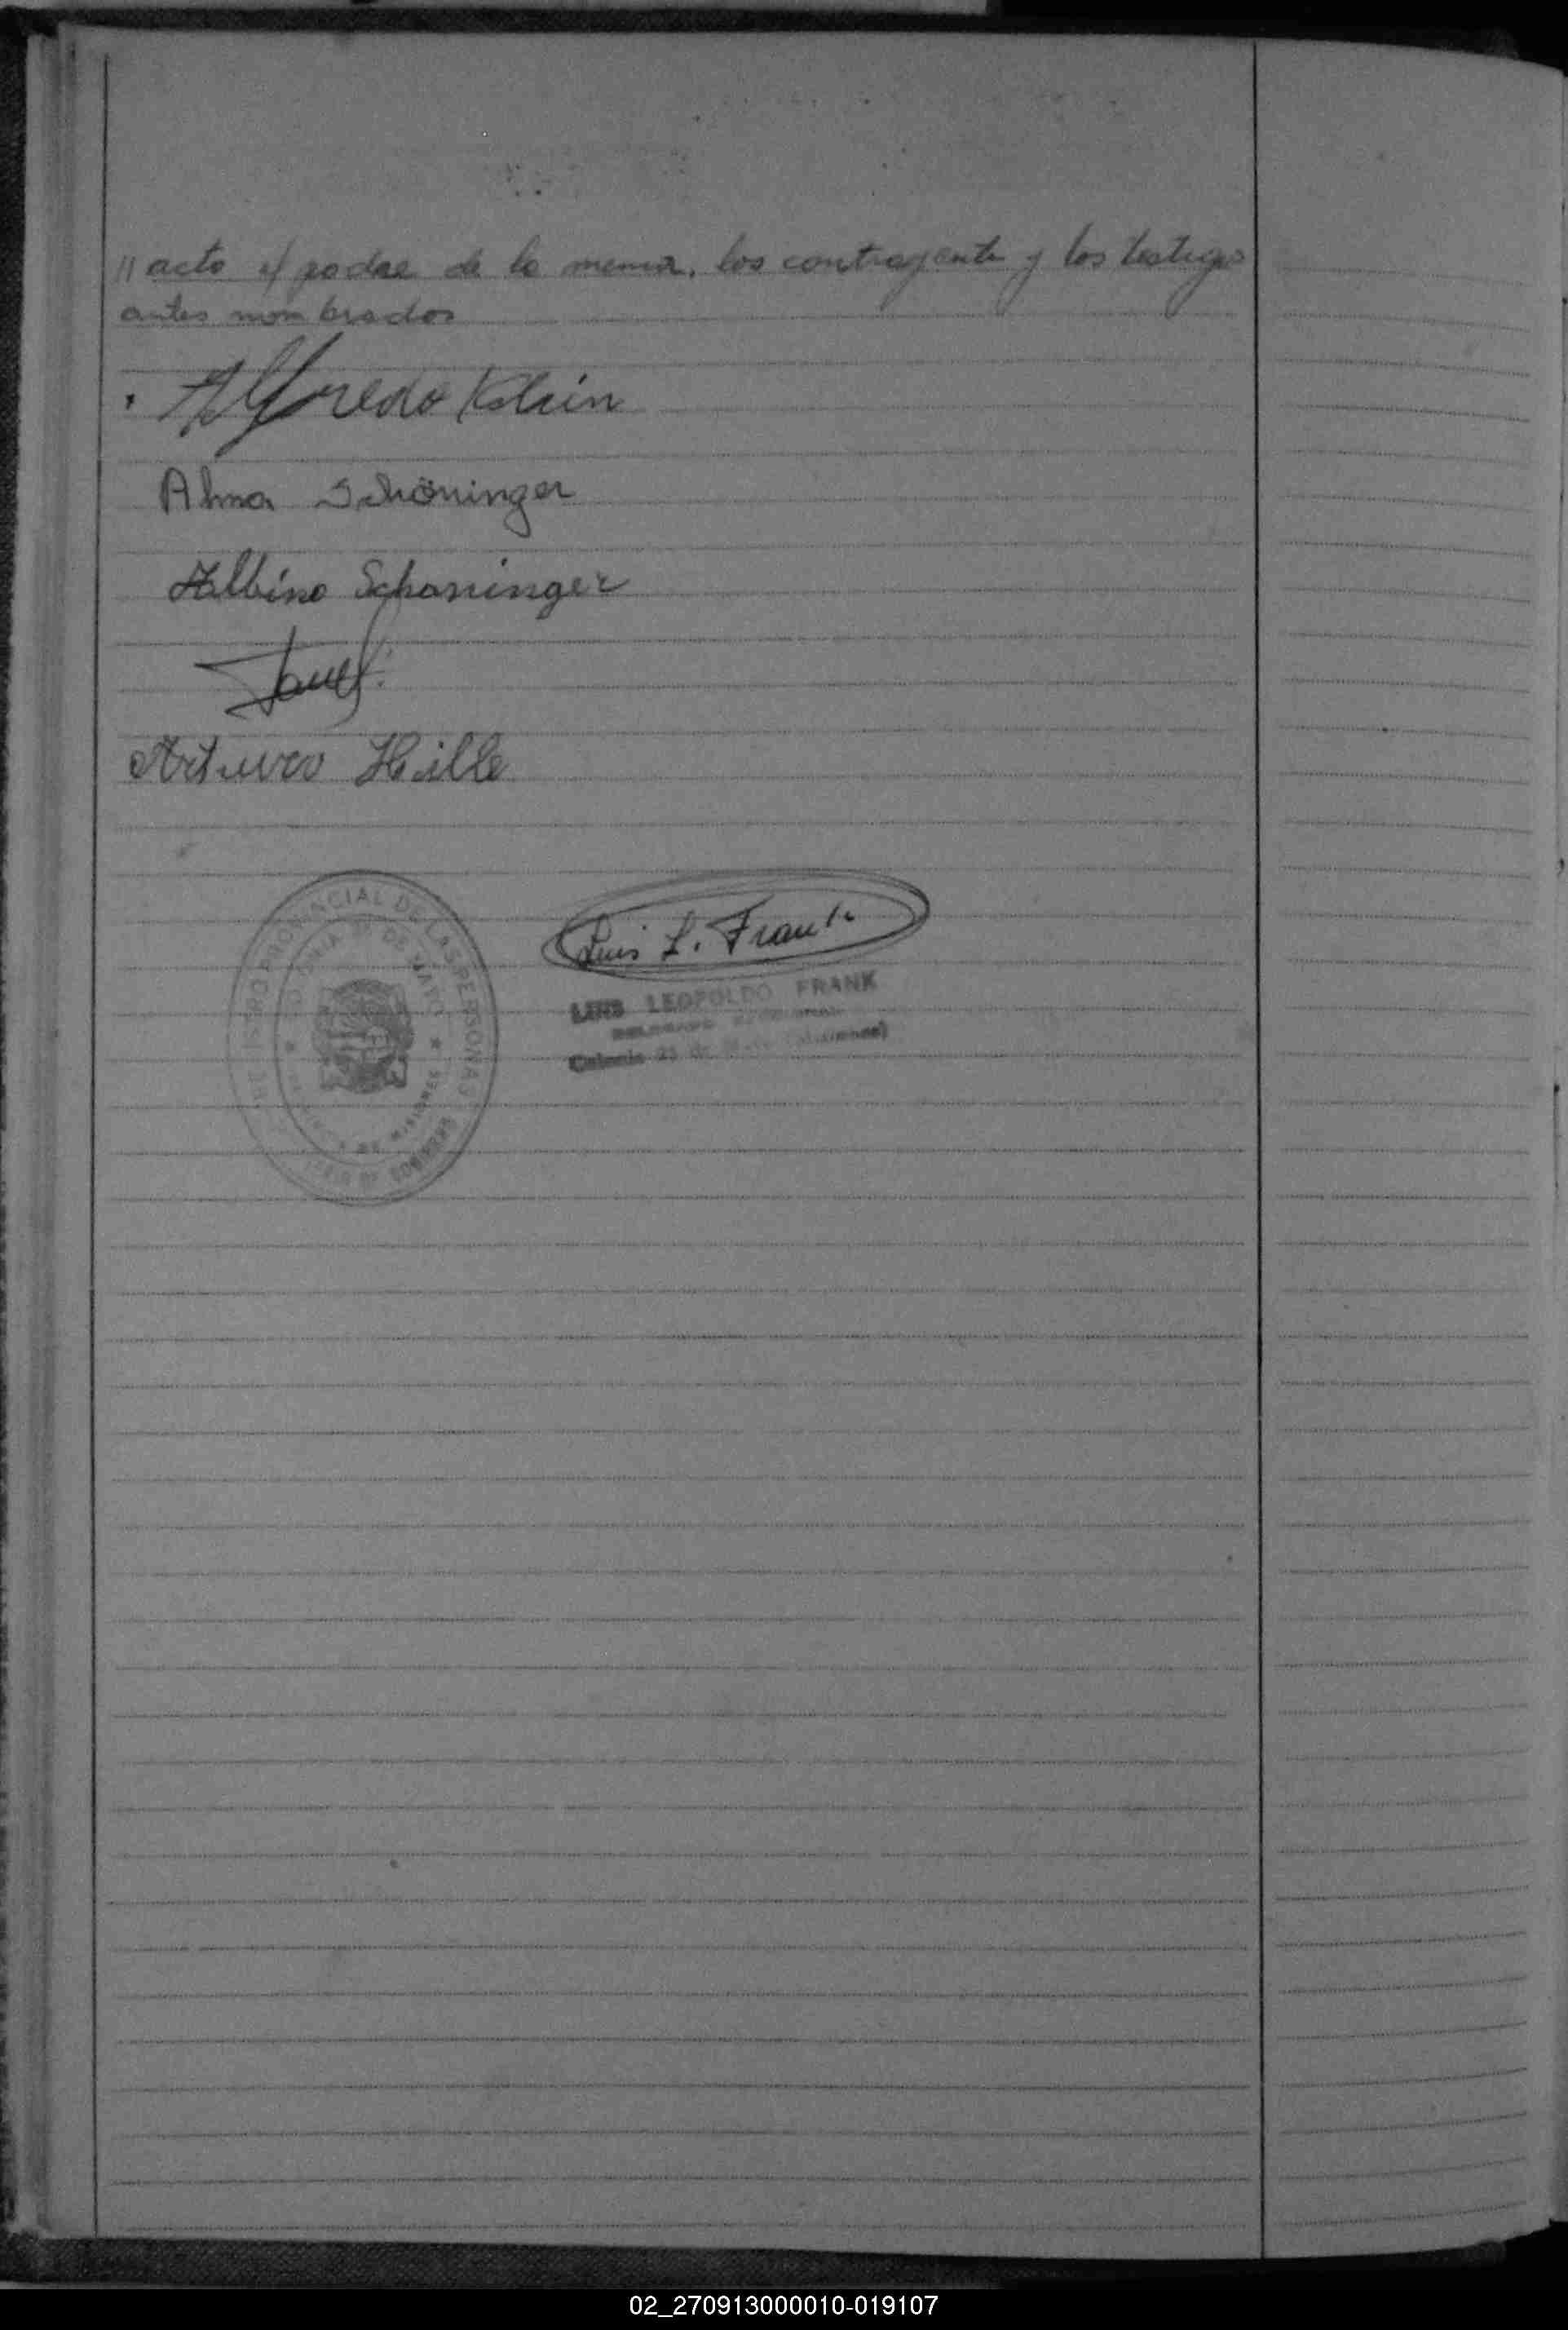 // acto el padre de la menor, los contrayente y los testigos
antes nombrados
Alfredo Klein
Alma Schöninger
Albino Schoninger
Arturo Hille
REGISTRO PROVINCIAL DE LAS PERSONAS
COLONIA 25 DE MAYO
DE MISIONES
DE GOBIERNO
Luis L. Frank
LUIS LEOPOLDO FRANK
Colonia 25 de Mayo (Misiones)
02_270913000010-019107